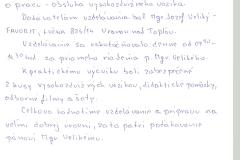 o prácu - obsluha vysokozdvižného vozíka.
Dodávateľom vzdelávania bol Mgr. Jozef Veliký -
FAVORIT, Lúčna 825/14 Vranov nad Topľou.
Vzdelávanie sa uskutočňovalo denne od 8 00 -
hod za priameho riadenia p. Mgr. Velikého.
K praktickému výcviku boli zabezpečené
2 kusy vysokozdvižných vozíkov, didaktické pomôcky,
odborné filmy a šoty.
Celkovo hodnotíme vzdelávanie a prípravu na
veľmi dobrej úrovni, za to patrí poďakovanie
pánovi Mgr Velikému.